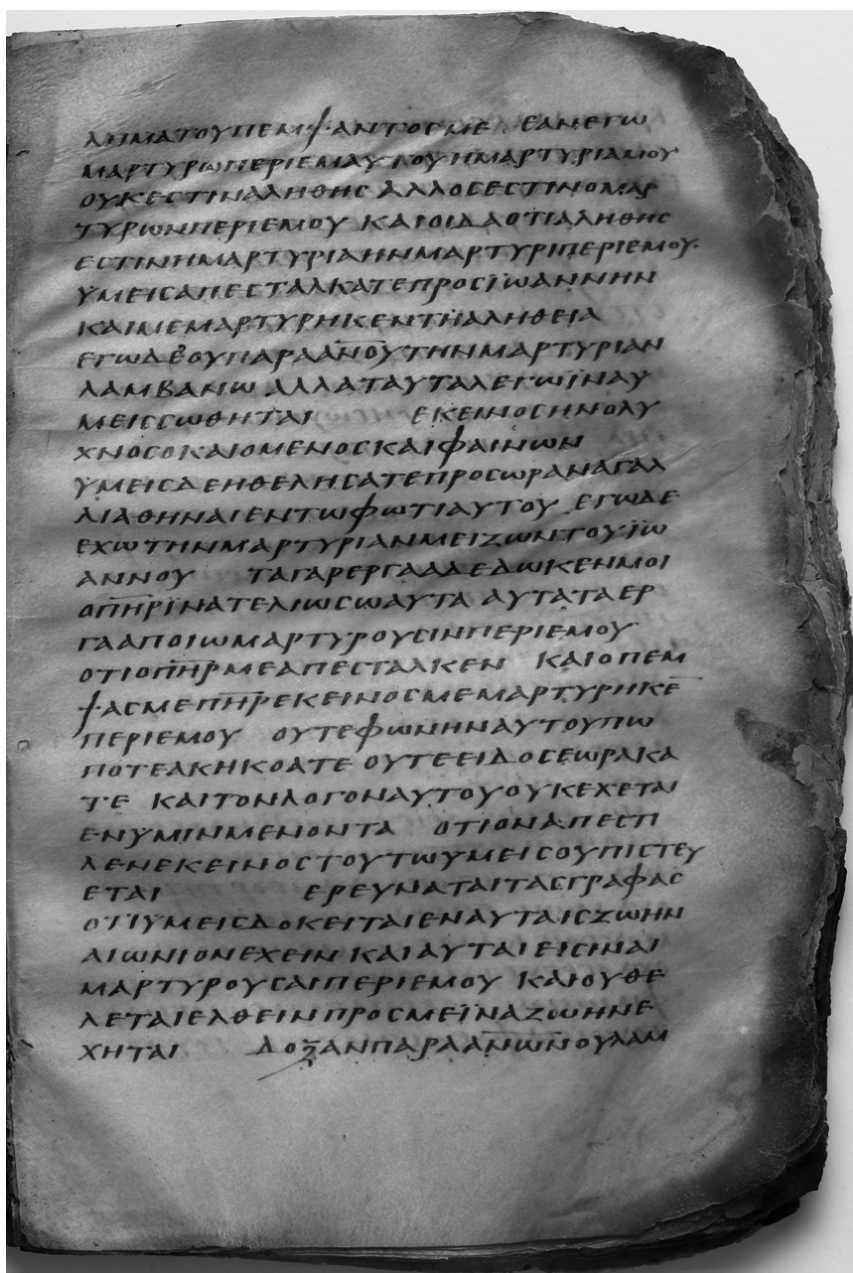 ΛΗΜΑΤΟΥΠΕΜΨΑΝΤΟCΜΕ ΕΑΝΕΓΩ
ΜΑΡΤΥΡΩΠΕΡΙΕΜΑΥΤΟΥΗΜΑΡΤΥΡΙΑΜΟΥ
ΟΥΚΕCΤΙΝΑΛΗΘΗC ΑΛΛΟCΕCΤΙΝΟΜΑΡ
ΤΥΡΩΝΠΕΡΙΕΜΟΥ ΚΑΙΟΙΔΑΟΤΙΑΛΗΘΗC
ΕCΤΙΝΗΜΑΡΤΥΡΙΑΗΝΜΑΡΤΥΡΙΠΕΡΙΕΜΟΥ·
ΥΜΕΙCΑΠΕCΤΑΛΚΑΤΕΠΡΟCΪΩΑΝΝΗΝ
ΚΑΙΜΕΜΑΡΤΥΡΗΚΕΝΤΗΑΛΗΘΕΙΑ
ΕΓΩΔΕΟΥΠΑΡΑΑΝ̅Ο̅Υ̅ΤΗΝΜΑΡΤΥΡΙΑΝ
ΛΑΜΒΑΝΩ ΑΛΛΑΤΑΥΤΑΛΕΓΩΪΝΑΥ
ΜΕΙCCΩΘΗΤΑΙ ΕΚΕΙΝΟCΗΝΟΛΥ
ΧΝΟCΟΚΑΙΟΜΕΝΟCΚΑΙΦΑΙΝΩΝ
ΥΜΕΙCΔΕΗΘΕΛΗCΑΤΕΠΡΟCΩΡΑΝΑΓΑΛ
ΛΙΑΘΗΝΑΙΕΝΤΩΦΩΤΙΑΥΤΟΥ ΕΓΩΔΕ
ΕΧΩΤΗΝΜΑΡΤΥΡΙΑΝΜΕΙΖΩΝΤΟΥΪΩ
ΑΝΝΟΥ ΤΑΓΑΡΕΡΓΑΑΔΕΔΩΚΕΝΜΟΙ
ΟΠ̅Η̅Ρ̅ΪΝΑΤΕΛΙΩCΩΑΥΤΑ ΑΥΤΑΤΑΕΡ
ΓΑΑΠΟΙΩΜΑΡΤΥΡΟΥCΙΝΠΕΡΙΕΜΟΥ
ΟΤΙΟΠ̅Η̅Ρ̅ΜΕΑΠΕCΤΑΛΚΕΝ ΚΑΙΟΠΕΜ
ΨΑCΜΕΠ̅Η̅Ρ̅ΕΚΕΙΝΟCΜΕΜΑΡΤΥΡΗΚΕ̅
ΠΕΡΙΕΜΟΥ ΟΥΤΕΦΩΝΗΝΑΥΤΟΥΠΩ
ΠΟΤΕΑΚΗΚΟΑΤΕ ΟΥΤΕΕΙΔΟCΕΩΡΑΚΑ
ΤΕ ΚΑΙΤΟΝΛΟΓΟΝΑΥΤΟΥΟΥΚΕΧΕΤΑΙ
ΕΝΥΜΙΝΜΕΝΟΝΤΑ ΟΤΙΟΝΑΠΕCΤΙ
ΛΕΝΕΚΕΙΝΟCΤΟΥΤΩΥΜΕΙCΟΥΠΙCΤΕΥ
ΕΤΑΙ ΕΡΕΥΝΑΤΑΙΤΑCΓΡΑΦΑC
ΟΤΙΥΜΕΙCΔΟΚΕΙΤΑΙΕΝΑΥΤΑΙCΖΩΗΝ
ΑΙΩΝΙΟΝΕΧΕΙΝ ΚΑΙΑΥΤΑΙΕΙCΙΝΑΙ
ΜΑΡΤΥΡΟΥCΑΙΠΕΡΙΕΜΟΥ ΚΑΙΟΥΘΕ
ΛΕΤΑΙΕΛΘΕΙΝΠΡΟCΜΕΪΝΑΖΩΗΝΕ
ΧΗΤΑΙ ΔΟΞΑΝΠΑΡΑΑΝ̅Ω̅Ν̅ΟΥΛΑΜ